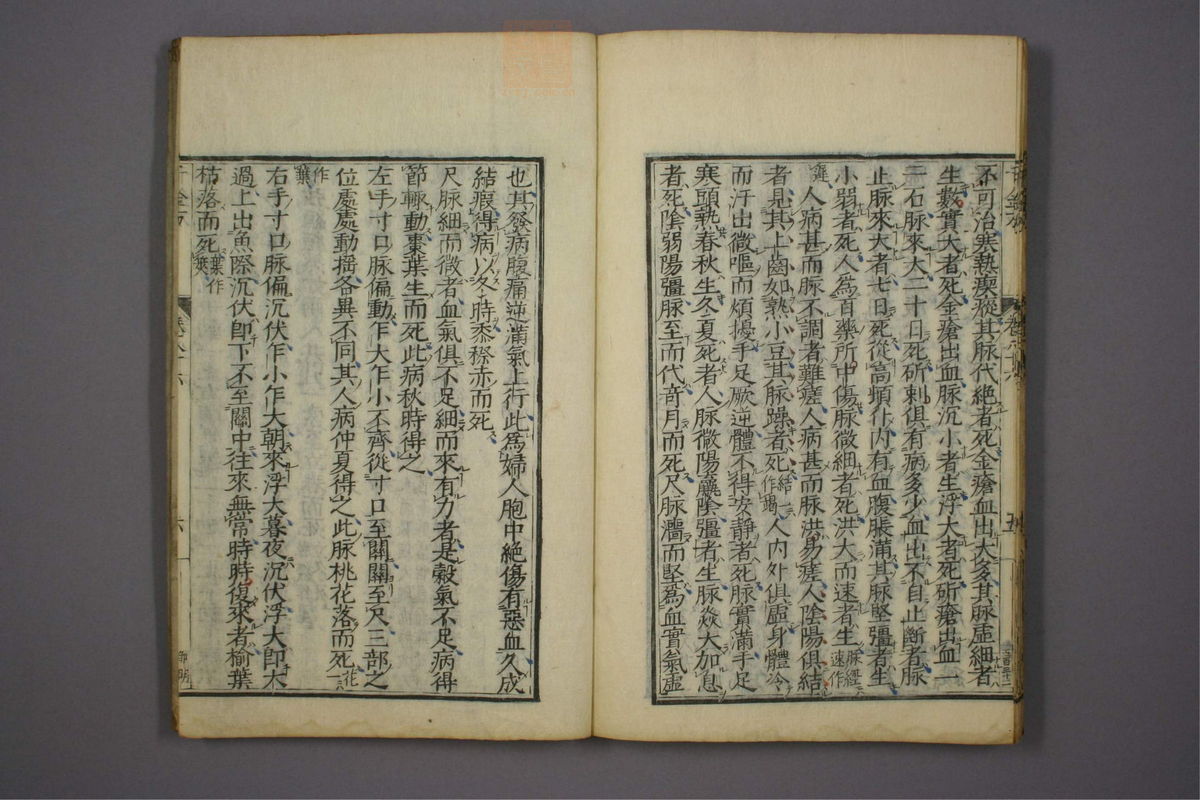 不可治寒熱瘈瘲其脉代絕者死金瘡血出太多其脉虛細者
生數實大者死金瘡出血脉沉小者生浮大者死斫瘡出血一
二石脉來大二十日死斫刺俱有病多少血出不自止斷者脉
止脉來大者七日死從高頓仆内有血腹脹滿其脉堅彊者生
小弱者死人爲百藥所中傷脉微細者死洪大而速者生脉經速作
遲人病甚而脉不調者難瘥人病甚而脉洪易瘥人陰陽俱結
者見其上齒如熟小豆其脉躁者死結一作竭人内外俱虛身體冷
而汗出微嘔而煩擾手足厥逆體不得安靜者死脉實滿手足
寒頭熱春秋生冬夏死者人脉微陽羸陰彊者生脉焱大加息
者死陰弱陽彊脉至而代竒月而死尺脉濇而堅爲血實氣虛
也其發病腹痛逆滿氣上行此爲婦人胞中絕傷有惡血久成
結瘕得病以冬時黍穄赤而死
尺脉細而微者血氣俱不足細而來有力者是穀氣不足病得
節輙動棗葉生而死此病秋時得之
左手寸口脉偏動乍大乍小不齊從寸口至關關至尺三部之
位處處動揺各異不同其人病仲夏得之此脉桃花落而死花
作葉
右手寸口脉偏沉伏乍小乍大朝來浮大暮夜沉伏浮大即太
過上出魚際沉伏即下不至關中往來無常時時復來者榆葉
枯落而死葉作莢
千金方
六